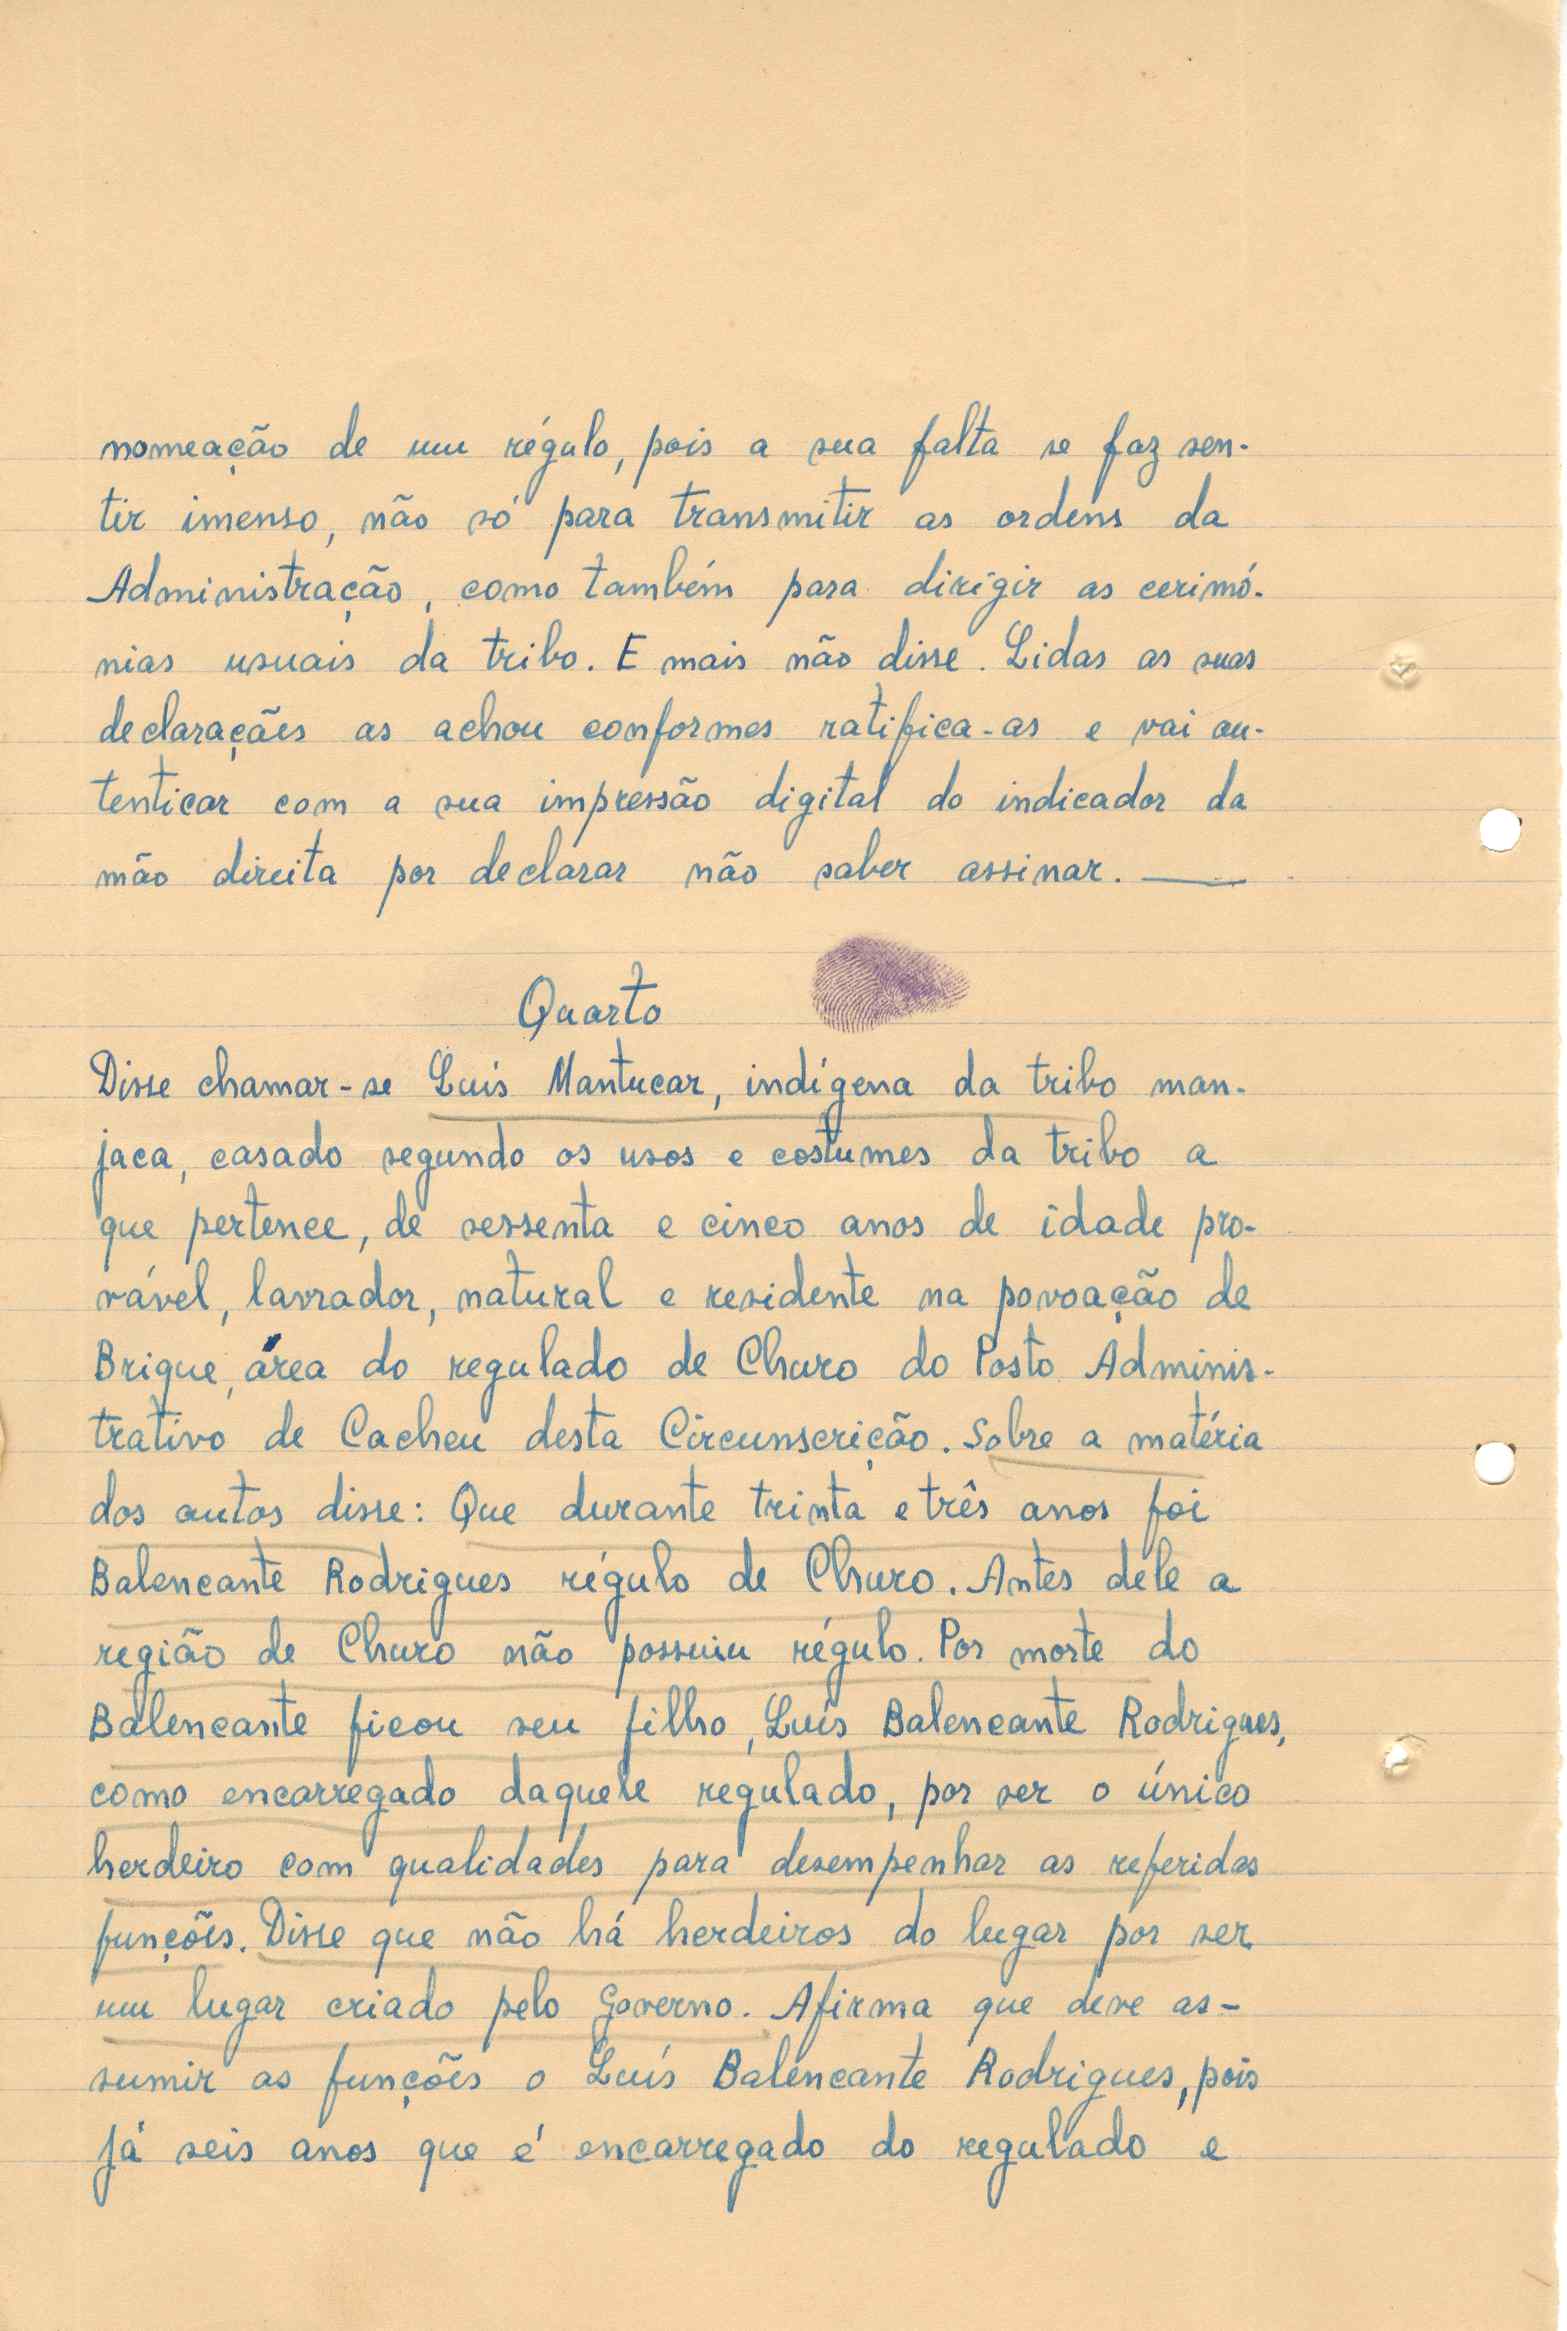 nomeação de um régulo, pois a sua falta se faz sen-
tir imenso, não só para transmitir as ordens da
Administração, como também para dirigir as cerimó-
nias usuais da tribo. E mais não disse. Lidas as suas
declarações as achou conformes ratifica-as e vai au-
tenticar com a sua impressão digital do indicador da
mão direita por declarar não saber assinar.
Quarto
Disse chamar-se Luís Mantucar, indígena da tribo man-
jaca, casado segundo os usos e costumes da tribo a
que pertence, de sessenta e cinco anos de idade pro-
vável, lavrador, natural e residente na povoação de
Brique, área do regulado de Churo do Posto Adminis-
trativo de Cacheu desta Circunscrição. Sobre a matéria
dos autos disse: Que durante trinta e três anos foi
Balencante Rodrigues régulo de Churo. Antes dele a
região de Churo não possuiu régulo. Por morte do
Balencante ficou seu filho, Luís Balencante Rodrigues,
como encarregado daquele regulado, por ser o único
herdeiro com qualidades para desempenhar as referidas
funções. Disse que não há herdeiros do lugar por ser
um lugar criado pelo Governo. Afirma que deve as-
sumir as funções o Luís Balencante Rodrigues, pois
já seis anos que é encarregado do regulado e